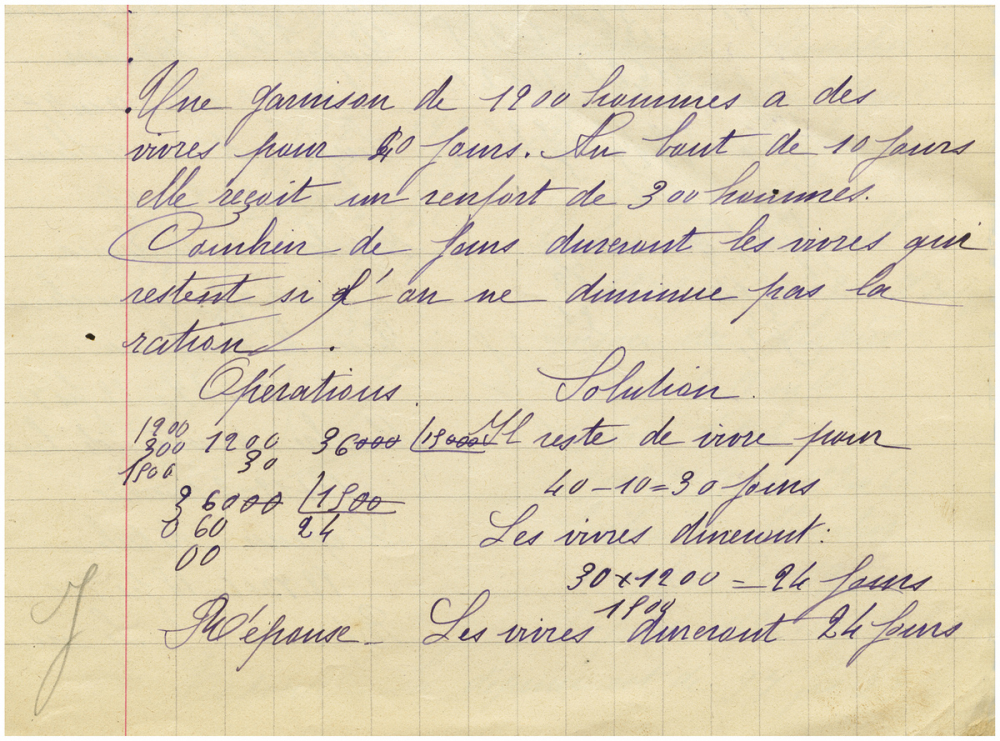 Une garnison de 1200 hommes a des
vivres pour 40 jours. Au bout de 10 jours
elle reçoit un renfort de 300 hommes.
Combien de jours dureront les vivres qui
restent si l'on ne diminue pas la
ration.
Opérations
1200
300
1500
1200
30
36000 15000
36000 1500
060 24
00
Solution
Il reste de vivre pour
40-10=30 jours
Les vivres dureront:
30x1200 = 24 jours
1500
Réponse - Les vivres dureront 24 jours